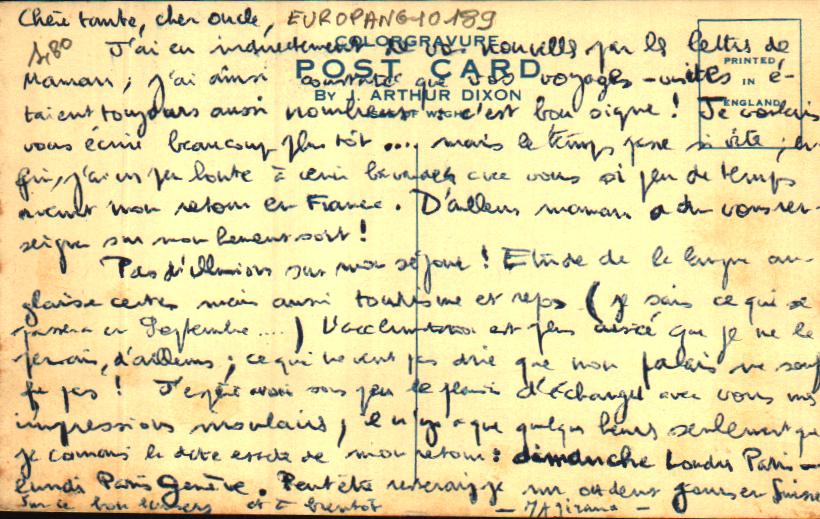 Chère tante, cher oncle, EUROPANG 10 189
4,80 J'ai eu indirectement de vos nouvelles par les lettres de
COLORGRAVURE
POST CARD
BY J. ARTHUR DIXON
PRINTED
IN
ENGLAND
Maman ; j'ai ainsi constaté que vos voyages-visites é-
taient toujours aussi nombreux : c'est bon signe ! Je voulais
vous écrire beaucoup plus tôt .... mais le temps passe si vite ; en-
fin, j'ai un peu honte à venir bavarder avec vous si peu de temps
avant mon retour en France. D'ailleurs maman a dû vous ren-
seigner sur mon heureux sort !
Pas d'illusions sur mon séjour ! Etude de la langue an-
glaise certes mais aussi tourisme et repos (je sais ce qui se
passera en Septembre ....) L'acclimatation est plus aisée que je ne le
pensais, d'ailleurs ; ce qui ne veut pas dire que mon palais ne souf-
fre pas ! J'espère avoir sous peu le plaisir d'échanger avec vous mes
impressions insulaires ; il n'y a que quelques heures seulement que
je connais la date exacte de mon retour : dimanche Londres Paris -
lundi Paris Genève. Peut être resterai-je un ou deux jours en Suisse
Sur ce bons baisers et à bientôt